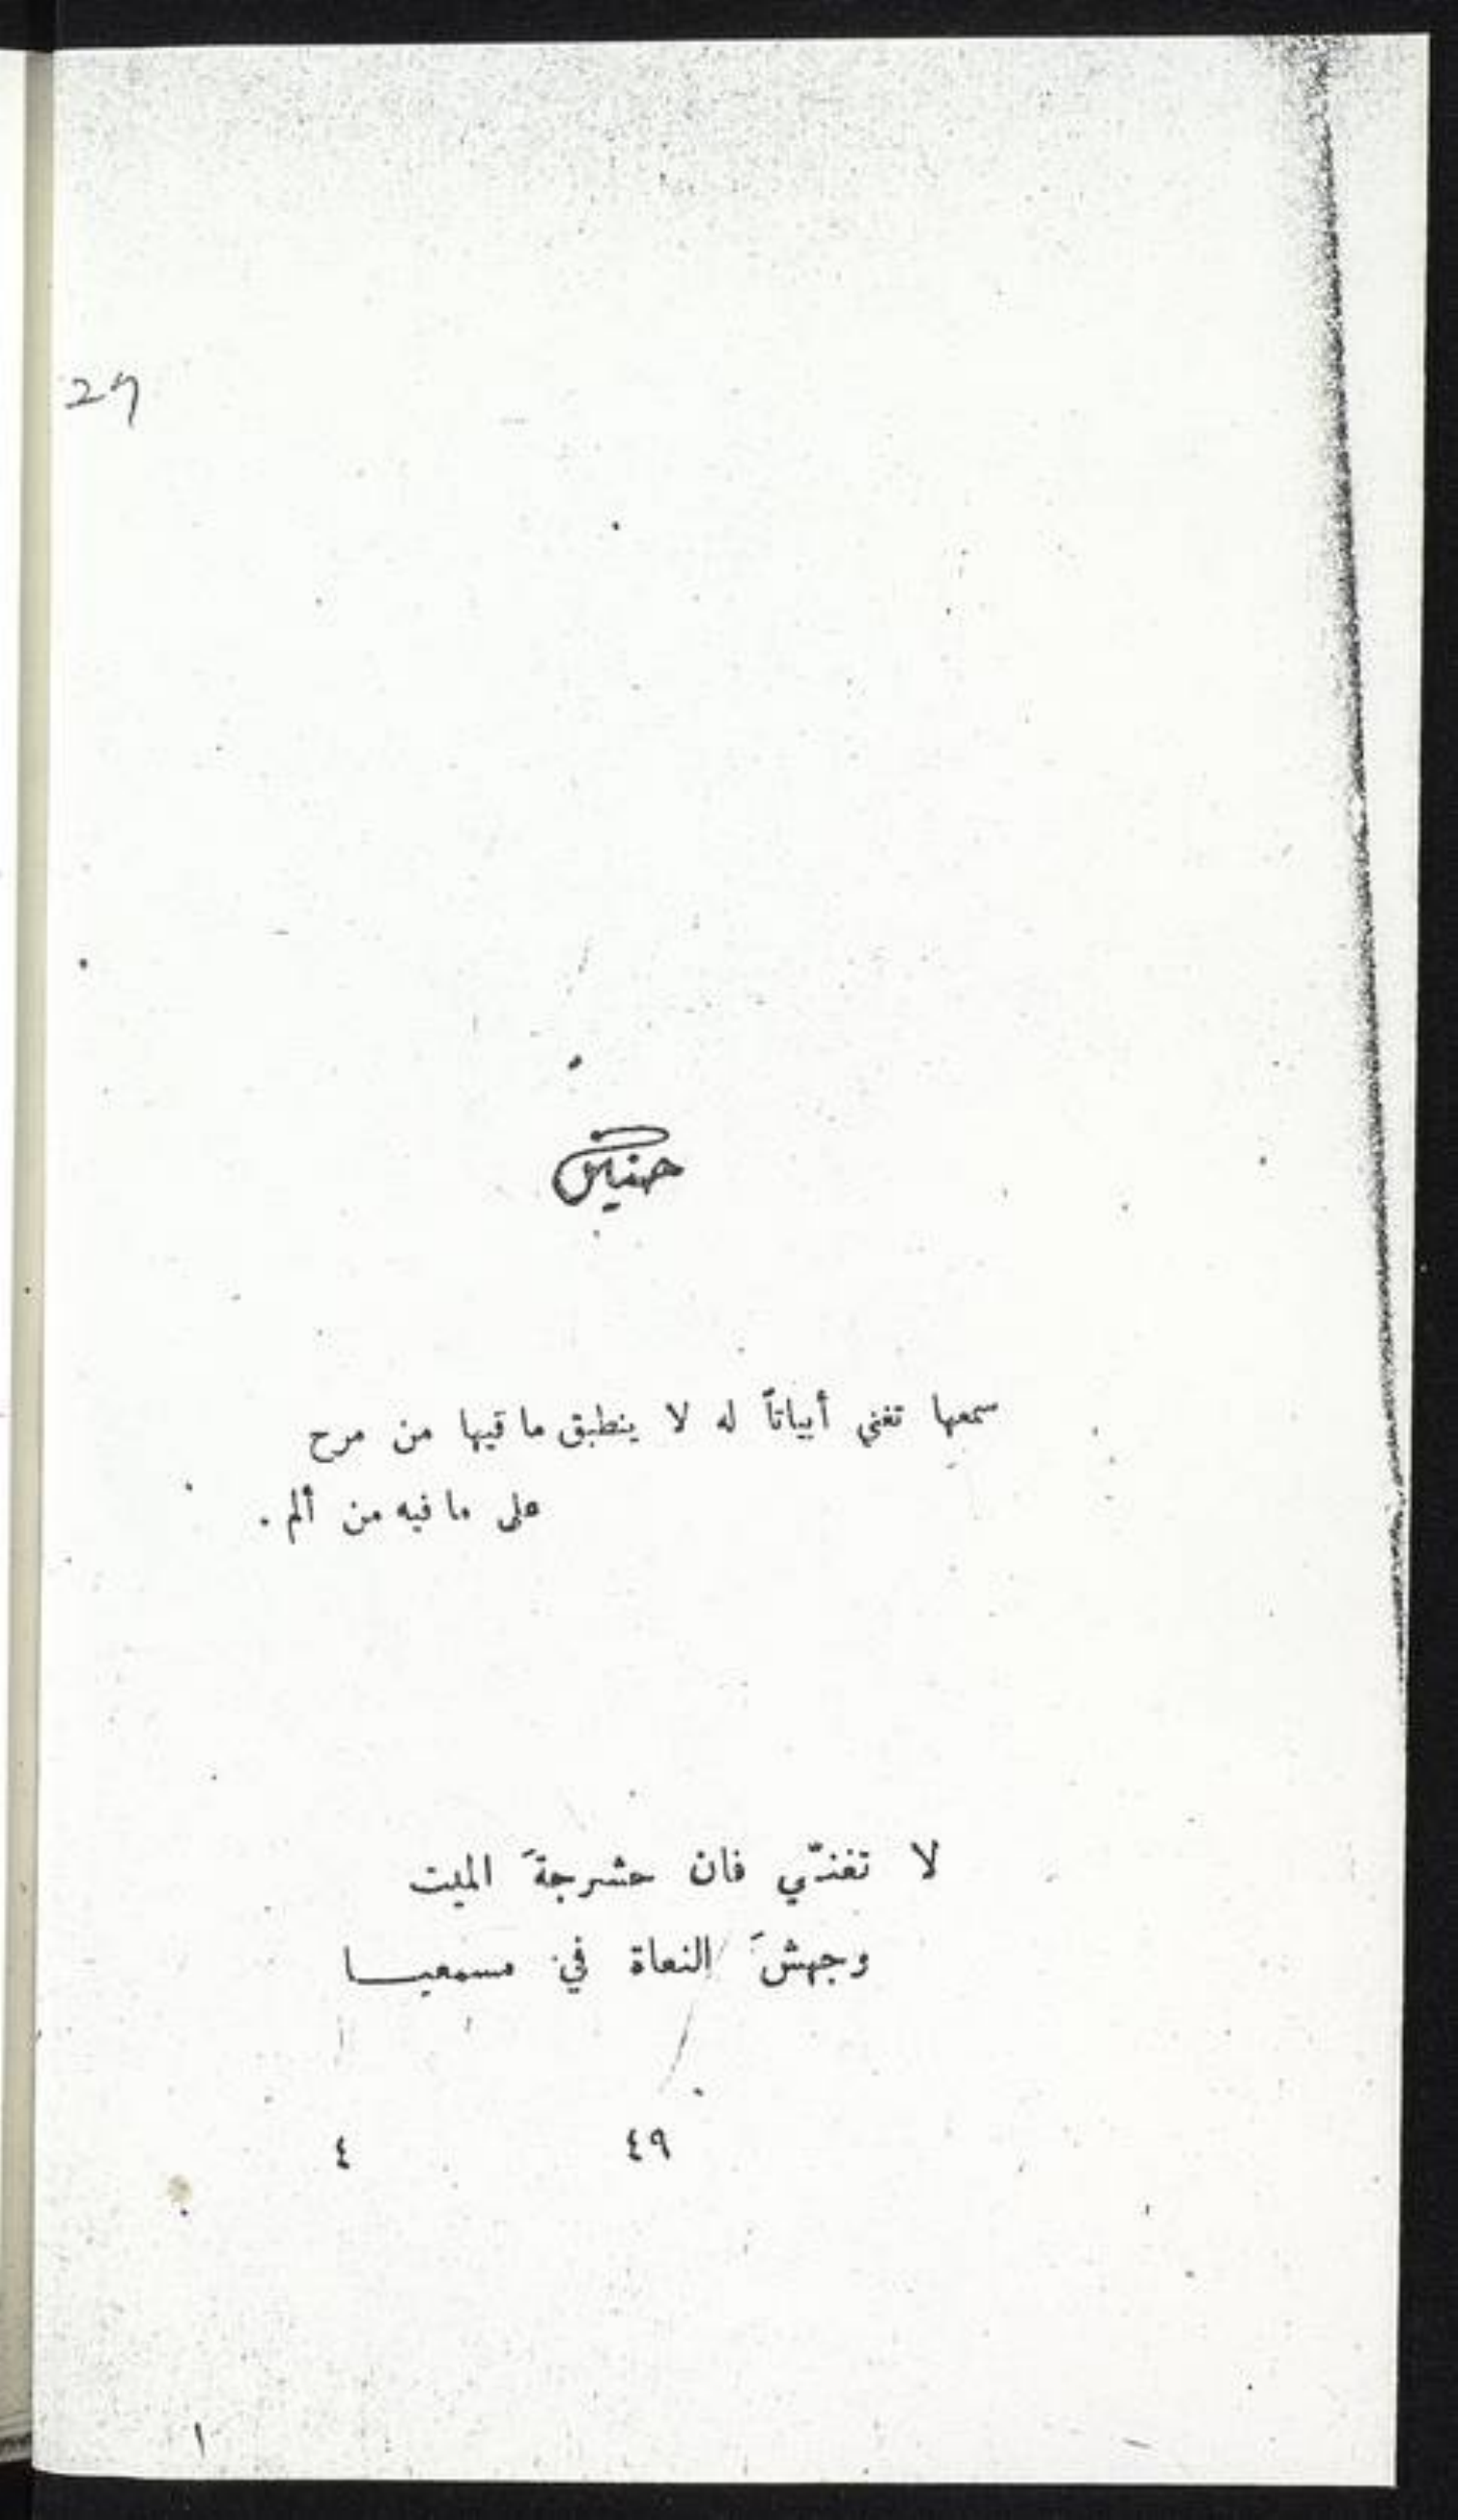 29
حنين
سمعها تغني أبياتاً له لا ينطبق ما فيها من مرح
على ما فيه من ألم .
لا تغنّي فان حشرجةَ الميت
وجهشَ النعاة في مسمعيـــا
٤٩ ٤